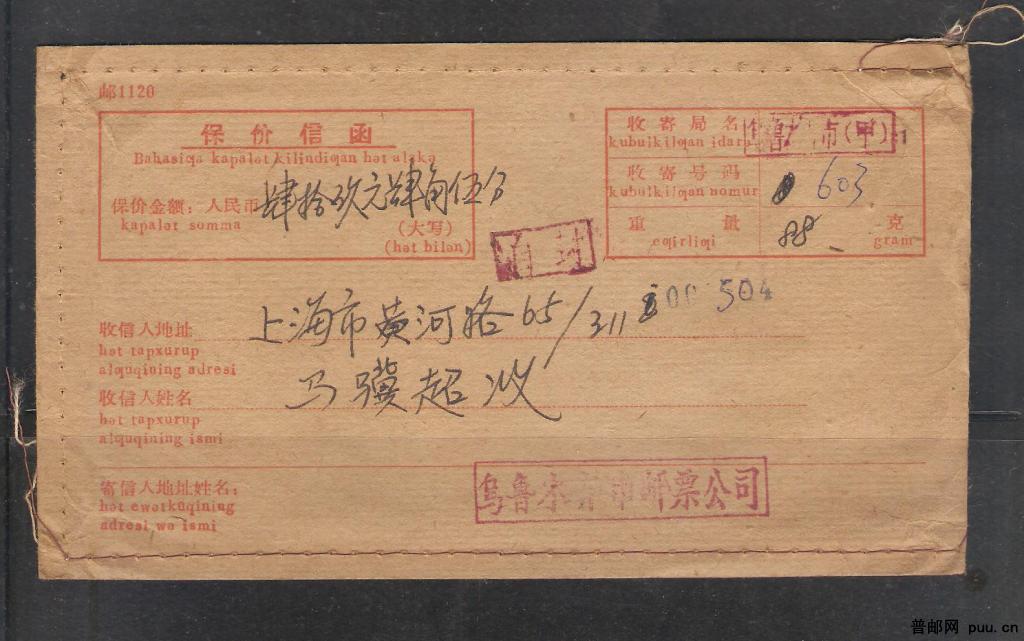 邮1120
保价信函
Bahasiqa kapalǝt kilindiqan hǝt alǝkǝ
保价金额：人民币 肆拾玖元肆角伍分
kapalǝt somma
(大写)
(hǝt bilǝn)
收寄局名 市(甲)
kubulkilqan idara
收寄号码 603
kubulkilqan nomur
重量 88 克
eqirliqi gram
收信人地址 上海市黄河路65/311 504
hǝt tapxurup
alquqining adresi
收信人姓名 马骥超收
hǝt tapxurup
alquqining ismi
寄信人地址姓名： 乌鲁木齐市邮票公司
hǝt ewǝtküqining
adresi wǝ ismi
普邮网 puu.cn